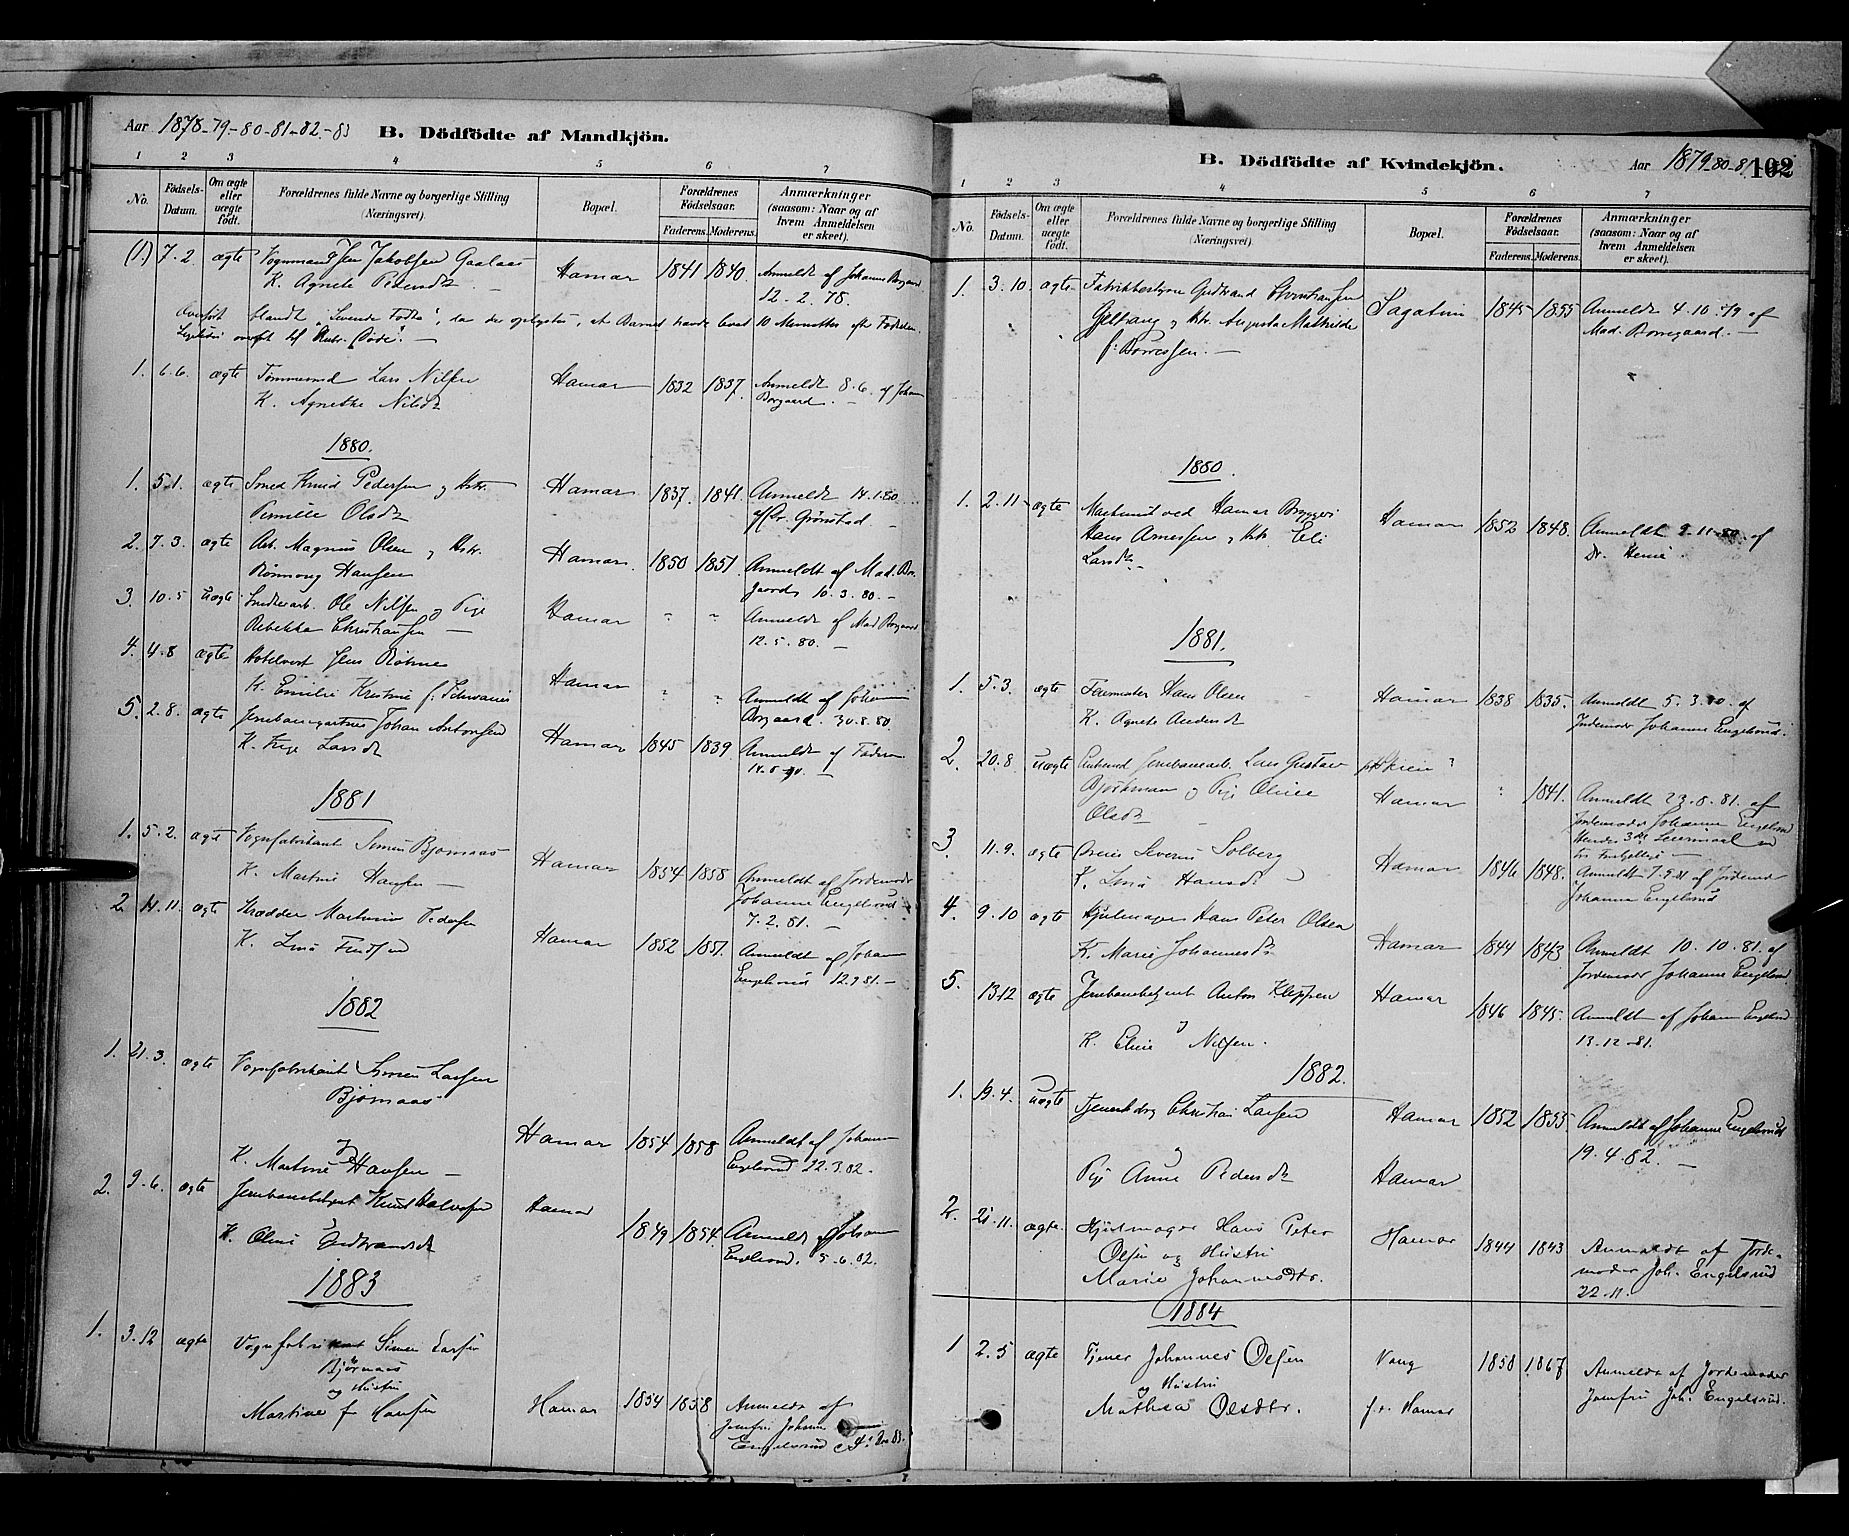 Aar 1878-79-80-81-82-83
B. Dödfödte af Mandkjön.
1 2 3 4 5 6 7
No.
Födsels-
Datum.
Om ægte
eller
uægte
födt.
Forældrenes fulde Navne og borgerlige Stilling
(Næringsvei).
Bopæl.
Forældrenes
Födselsaar.
Faderens. Moderens.
Anmærkninger
(saasom: Naar og af
hvem Anmeldelsen
er skeet).
(1.) 7-2. ægte Jakobsen Gaalaas Hamar 1841 1840. Anmeldt af Johanne Borgaard
K. Agnete Pedersdt. 12.2.78.
Overført blandt "Levende Fødte", da det oplystes, at Barnet havde levet 10 Minutter efter Fødselen
1. 6.6. ægte Tømmermd Lars Nilsen Hamar 1832 1837. Anmeldt 8.6. af Johan
K. Agnethe Nilsdt Borgaard.
1880.
1. 5.1. ægte Smed Knud Pedersen og Hstr. Hamar 1837. 1841. Anmeldt 14.1.80
Pernille Olsdt Grønstad
2. 7.3. ægte Arb. Magnus Olsen og Hstr. Hamar. 1850 1851. Anmeldt af Mad. Bor-
Rønnong Hansen gaard 10.3.80.
3. 10.5 uægte Ole Nilsen og Pige Hamar " " Anmeldt af Mad Borgaard
Rebekka Christiansen 12.5.80.
4. 4.8 ægte Hotelvert Jens Røhme
K. Emilie Kristine f. Hamar " " Anmeldt af Johanne
Borgaard. 30.8.80.
5. 2.8. ægte Johan Antonsen Hamar 1845 1839 Anmeldt af Faderen
K. Larsdt
1881
1. 5.2. ægte Vognfabrikant Simen Bjørnaas Hamar 1854 1858 Anmeldt af Jordemoder
K. Martine Hansen Johanne Engelsrud
7.2.81.
2. 11.11. ægte Skrædder Martinus Pedersen Hamar 1852 1851. Anmeldt af Johanne
K. Lina Engelsrud
1882
1. 21.3. ægte Vognfabrikant Simen Larsen
Bjørnaas
og
K. Martine Hansen Hamar 1854 1858 Anmeldt af Johanne
Engelsrud 22.3.82.
2. 9.6. ægte Jernbanebetjent Knut Halvorsen Hamar 1849 1854. Anmeldt af Johanne
K. Oline Gudbrandsdt Engelsrud. 9.6.82.
1883
1. 3.12 ægte Vognfabrikant Simen Larsen
Bjørnaas
og Hustru
Martine f Hansen Hamar 1854 1858 Anmeldt af
Jomfru Johanne
Engelsrud 4: Dec 83.
B. Dödfödte af Kvindekjön.
Aar 1879-80-81-82
102
1 2 3 4 5 6 7
No.
Födsels-
Datum.
Om ægte
eller
uægte
födt.
Forældrenes fulde Navne og borgerlige Stilling
(Næringsvei).
Bopæl.
Forældrenes
Födselsaar.
Faderens. Moderens.
Anmærkninger
(saasom: Naar og af
hvem Anmeldelsen
er skeet).
1. 3.10. ægte Fabrikbestyrer Gudbrand Christiansen Sagatun 1845 1855 Anmeldt 4.10.79 af
og Hstr. Augusta Mathilde Mad. Borregaard.
f: Borresen.
1880.
1. 2.11. ægte Maskinist ved Hamar Bryggeri Hamar 1852 1848. Anmeldt 9.11.80. af
Hans Arnesen og Hstr. Eli Dr.
Larsdt.
1881.
1. 5.3. ægte Farvmester Hans Olsen Hamar 1838 1835. Anmeldt 5.3. af
K. Agnete Jordemoder Johanne Engelsrud.
2. 20.8. uægte Lars Gustav
Bjørkman og Pige Oline Hamar " 1841. Anmeldt 23.8.81. af
Olsdt Jordemoder Johanne Engelsrud
Hendes 3die Leiermaal
3. 11.9. ægte Severin Solberg Hamar 1846 1848. Anmeldt af Jordemoder
K. Lina Hansdt Johanne Engelsrud
4. 9.10 ægte Hjulmager Hans Peter Olsen Hamar 1844 1843 Anmeldt 10.10.81. af
K. Marie Johannesdt Jordemoder Johanne Engelsrud.
5. 13.12 ægte Jernbanebetjent Anton Kleppen Hamar 1846 1845. Anmeldt af Johanne Engelsrud
og
K. Eline Nilsen. 13.12.81.
1882.
1. 19.4. uægte Christian Larsen Hamar 1852 1855. Anmeldt af Johanne Engelsrud
og 19.4.82.
Pige Anne Pedersdt Hamar
2. 21.11. ægte. Hjulmager Hans Peter Hamar 1844 1843 Anmeldt af Jorde-
Olsen og Hustru moder Joh. Engelsrud
Marie Johannesdtr. 22.11.
1884
1 2.5 ægte Tjener Johannes Olsen Vang 1858 1867 Anmeldt af Jordemoder
og Hustru Jomfru Joh. Engelsrud.
Mathea Olsdtr. f.t. Hamar